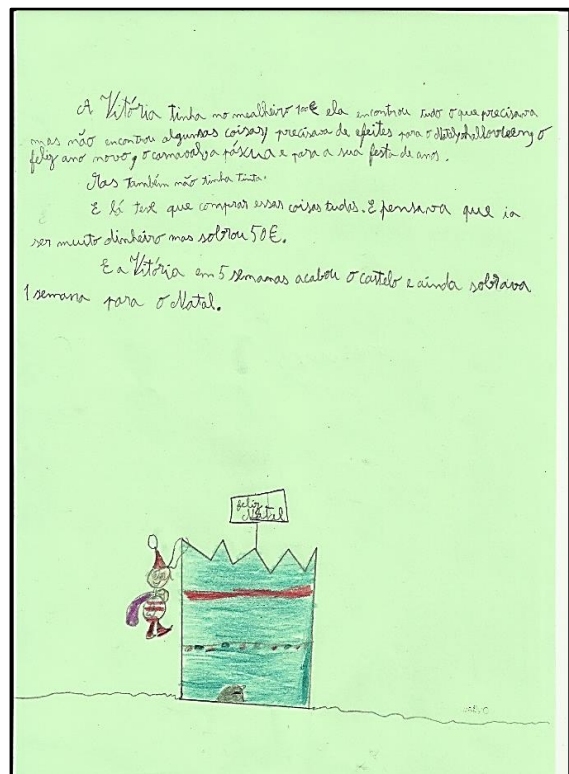 A Vitória tinha no mealheiro 100€ ela encontrou tudo o que precisava
mas não encontrou algumsas coisas, precisava de efeites para o Natal, o halloweeng o
feliz ano novo, o carnaval, a páscua e para a sua festa de anos.
Mas também não tinha tinta.
E lá teve que comprar essas coisas tudas. E pensava que ia
ser muito dinheiro mas sobrou 50€.
E a Vitória em 5 semanas acabou o castelo e ainda sobrava
1 semana para o Natal.
feliz
Natal